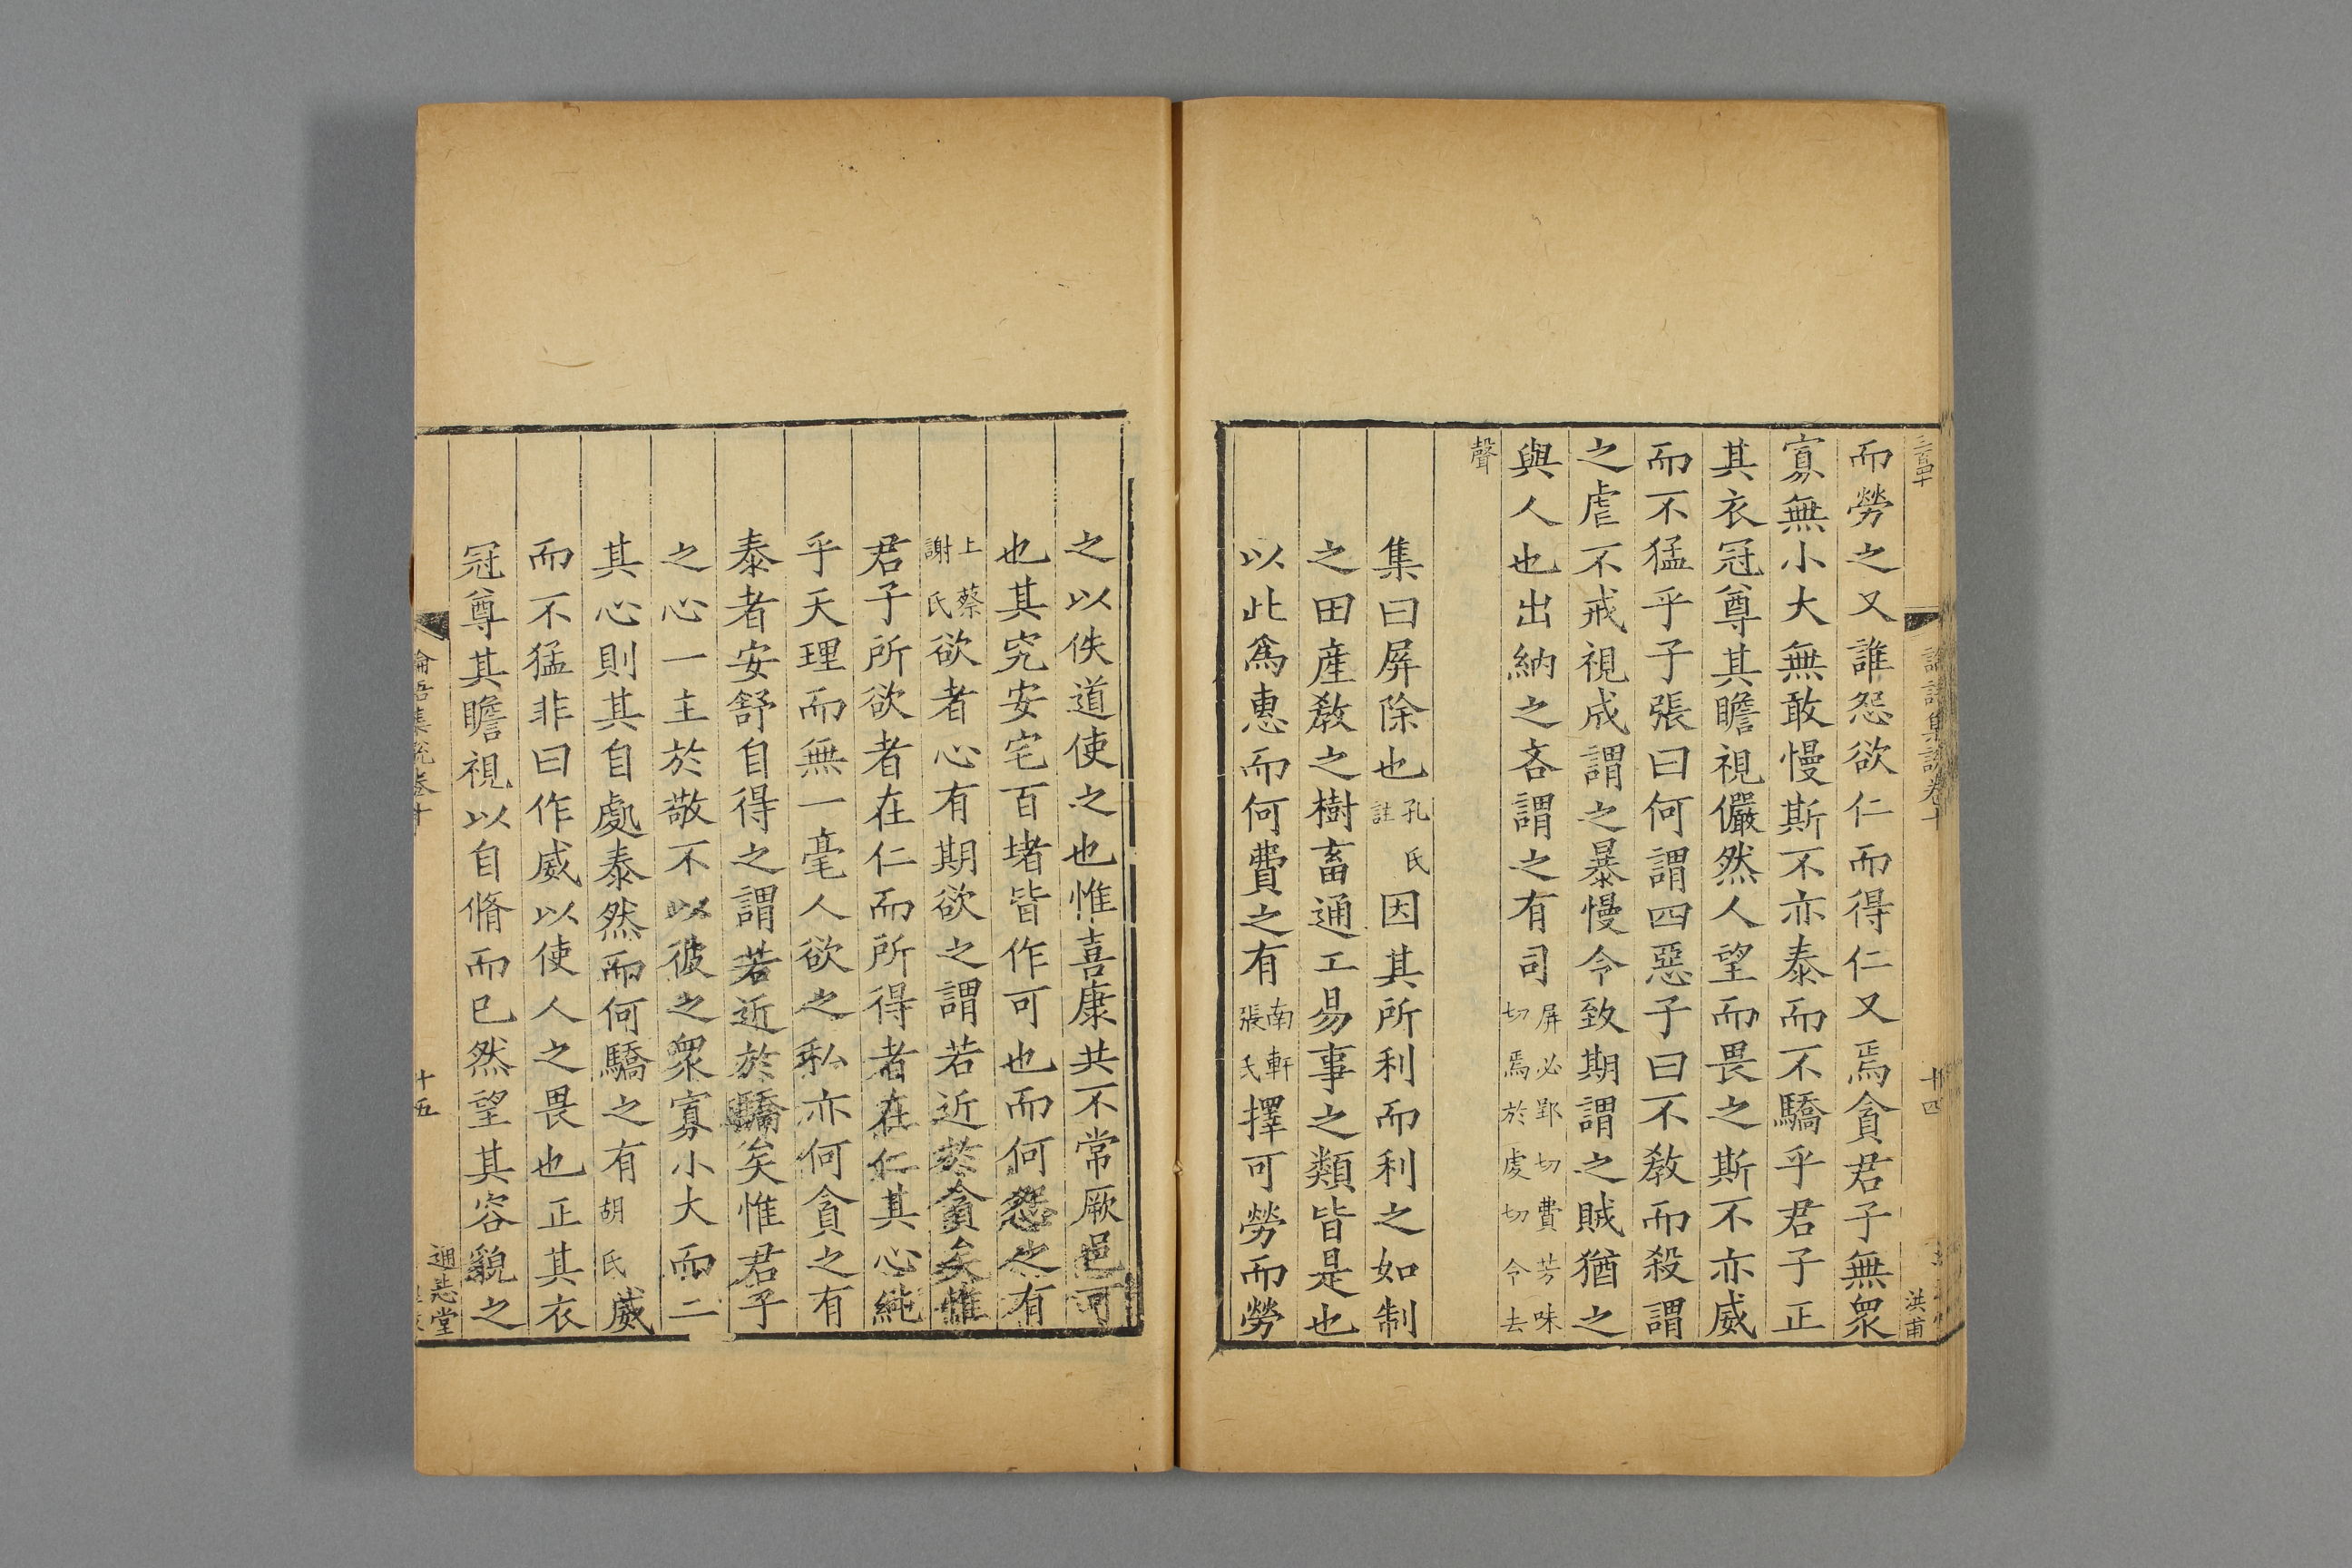 三百四十
論語集說卷十
十四
洪甫
而勞之又誰怨欲仁而得仁又焉貪君子無衆
寡無小大無敢慢斯不亦泰而不驕乎君子正
其衣冠尊其瞻視儼然人望而畏之斯不亦威
而不猛乎子張曰何謂四惡子曰不敎而殺謂
之虐不戒視成謂之暴慢令致期謂之賊猶之
與人也出納之吝謂之有司屏必郢切費芳味切焉於虔切令去
聲
集曰屏除也孔氏註因其所利而利之如制
之田産敎之樹畜通工易事之類皆是也
以此爲惠而何費之有南軒張氏擇可勞而勞
之以佚道使之也惟喜康共不常厥邑可
也其究安宅百堵皆作可也而何怨之有
上蔡謝氏欲者心有期欲之謂若近於貪矣惟
君子所欲者在仁而所得者在仁其心純
乎天理而無一毫人欲之私亦何貪之有
泰者安舒自得之謂若近於驕矣惟君子
之心一主於敬不以彼之衆寡小大而二
其心則其自處泰然而何驕之有胡氏威
而不猛非曰作威以使人之畏也正其衣
冠尊其瞻視以自脩而已然望其容貌之
論語集說卷十
十五
通志堂